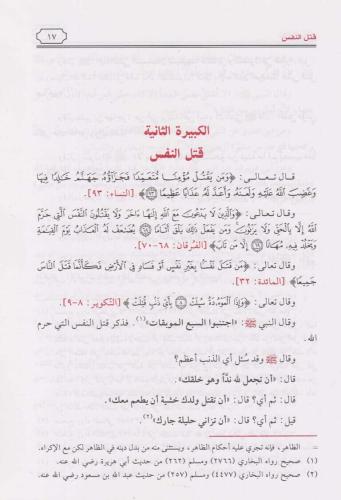 قتل النفس
١٧
الكبيرة الثانية
قتل النفس
قال تـعـالـى: ﴿وَمَن يَقْتُلْ مُؤْمِنًا مُّتَعَمِّدًا فَجَزَآؤُهُ جَهَنَّمُ خَالِدًا فِيهَا
وَغَضِبَ اللَّهُ عَلَيْهِ وَلَعَنَهُ وَأَعَدَّ لَهُ عَذَابًا عَظِيمًا﴾ [النساء: ٩٣].
وقال تـعـالـى: ﴿وَالَّذِينَ لَا يَدْعُونَ مَعَ اللَّهِ إِلَهًا ءَاخَرَ وَلَا يَقْتُلُونَ النَّفْسَ الَّتِي حَرَّمَ
اللَّهُ إِلَّا بِالْحَقِّ وَلَا يَزْنُونَ وَمَن يَفْعَلْ ذَلِكَ يَلْقَ أَثَامًا يُضَاعَفْ لَهُ الْعَذَابُ يَوْمَ الْقِيَامَةِ
وَيَخْلُدْ فِيهِ مُهَانًا إِلَّا مَن تَابَ﴾ [الفُرقان: ٦٨-٧٠].
وقال تعالى: ﴿مَن قَتَلَ نَفْسًا بِغَيْرِ نَفْسٍ أَوْ فَسَادٍ فِي الْأَرْضِ فَكَأَنَّمَا قَتَلَ النَّاسَ
جَمِيعًا﴾ [المائدة: ٣٢].
وقال تعالى: ﴿وَإِذَا الْمَوْءُودَةُ سُئِلَتْ بِأَيِّ ذَنبٍ قُتِلَتْ﴾ [التكوير: ٨-٩].
وقال النبي ﷺ: «اجتنبوا السبع الموبقات»(١). فذكر قتل النفس التي حرم
الله.
وقال ﷺ وقد سُئل أي الذنب أعظم؟
قال: «أن تجعل لله ندًّا وهو خلقك».
قال: ثم أي؟ قال: «أن تقتل ولدك خشية أن يطعم معك».
قيل: ثم أي؟ قال: «أن تزاني حليلة جارك»(٢).
= الظاهر، فإنه تجري عليه أحكام الظاهر، ويستثنى منه من بدل دينه في الظاهر لكن مع الإكراه.
(١) صحيح رواه البخاري (٢٧٦٦) ومسلم (٢٦٢) من حديث أبي هريرة رضي الله عنه.
(٢) صحيح رواه البخاري (٤٤٧٧) ومسلم (٢٥٧) من حديث عبد الله بن مسعود رضي الله عنه.